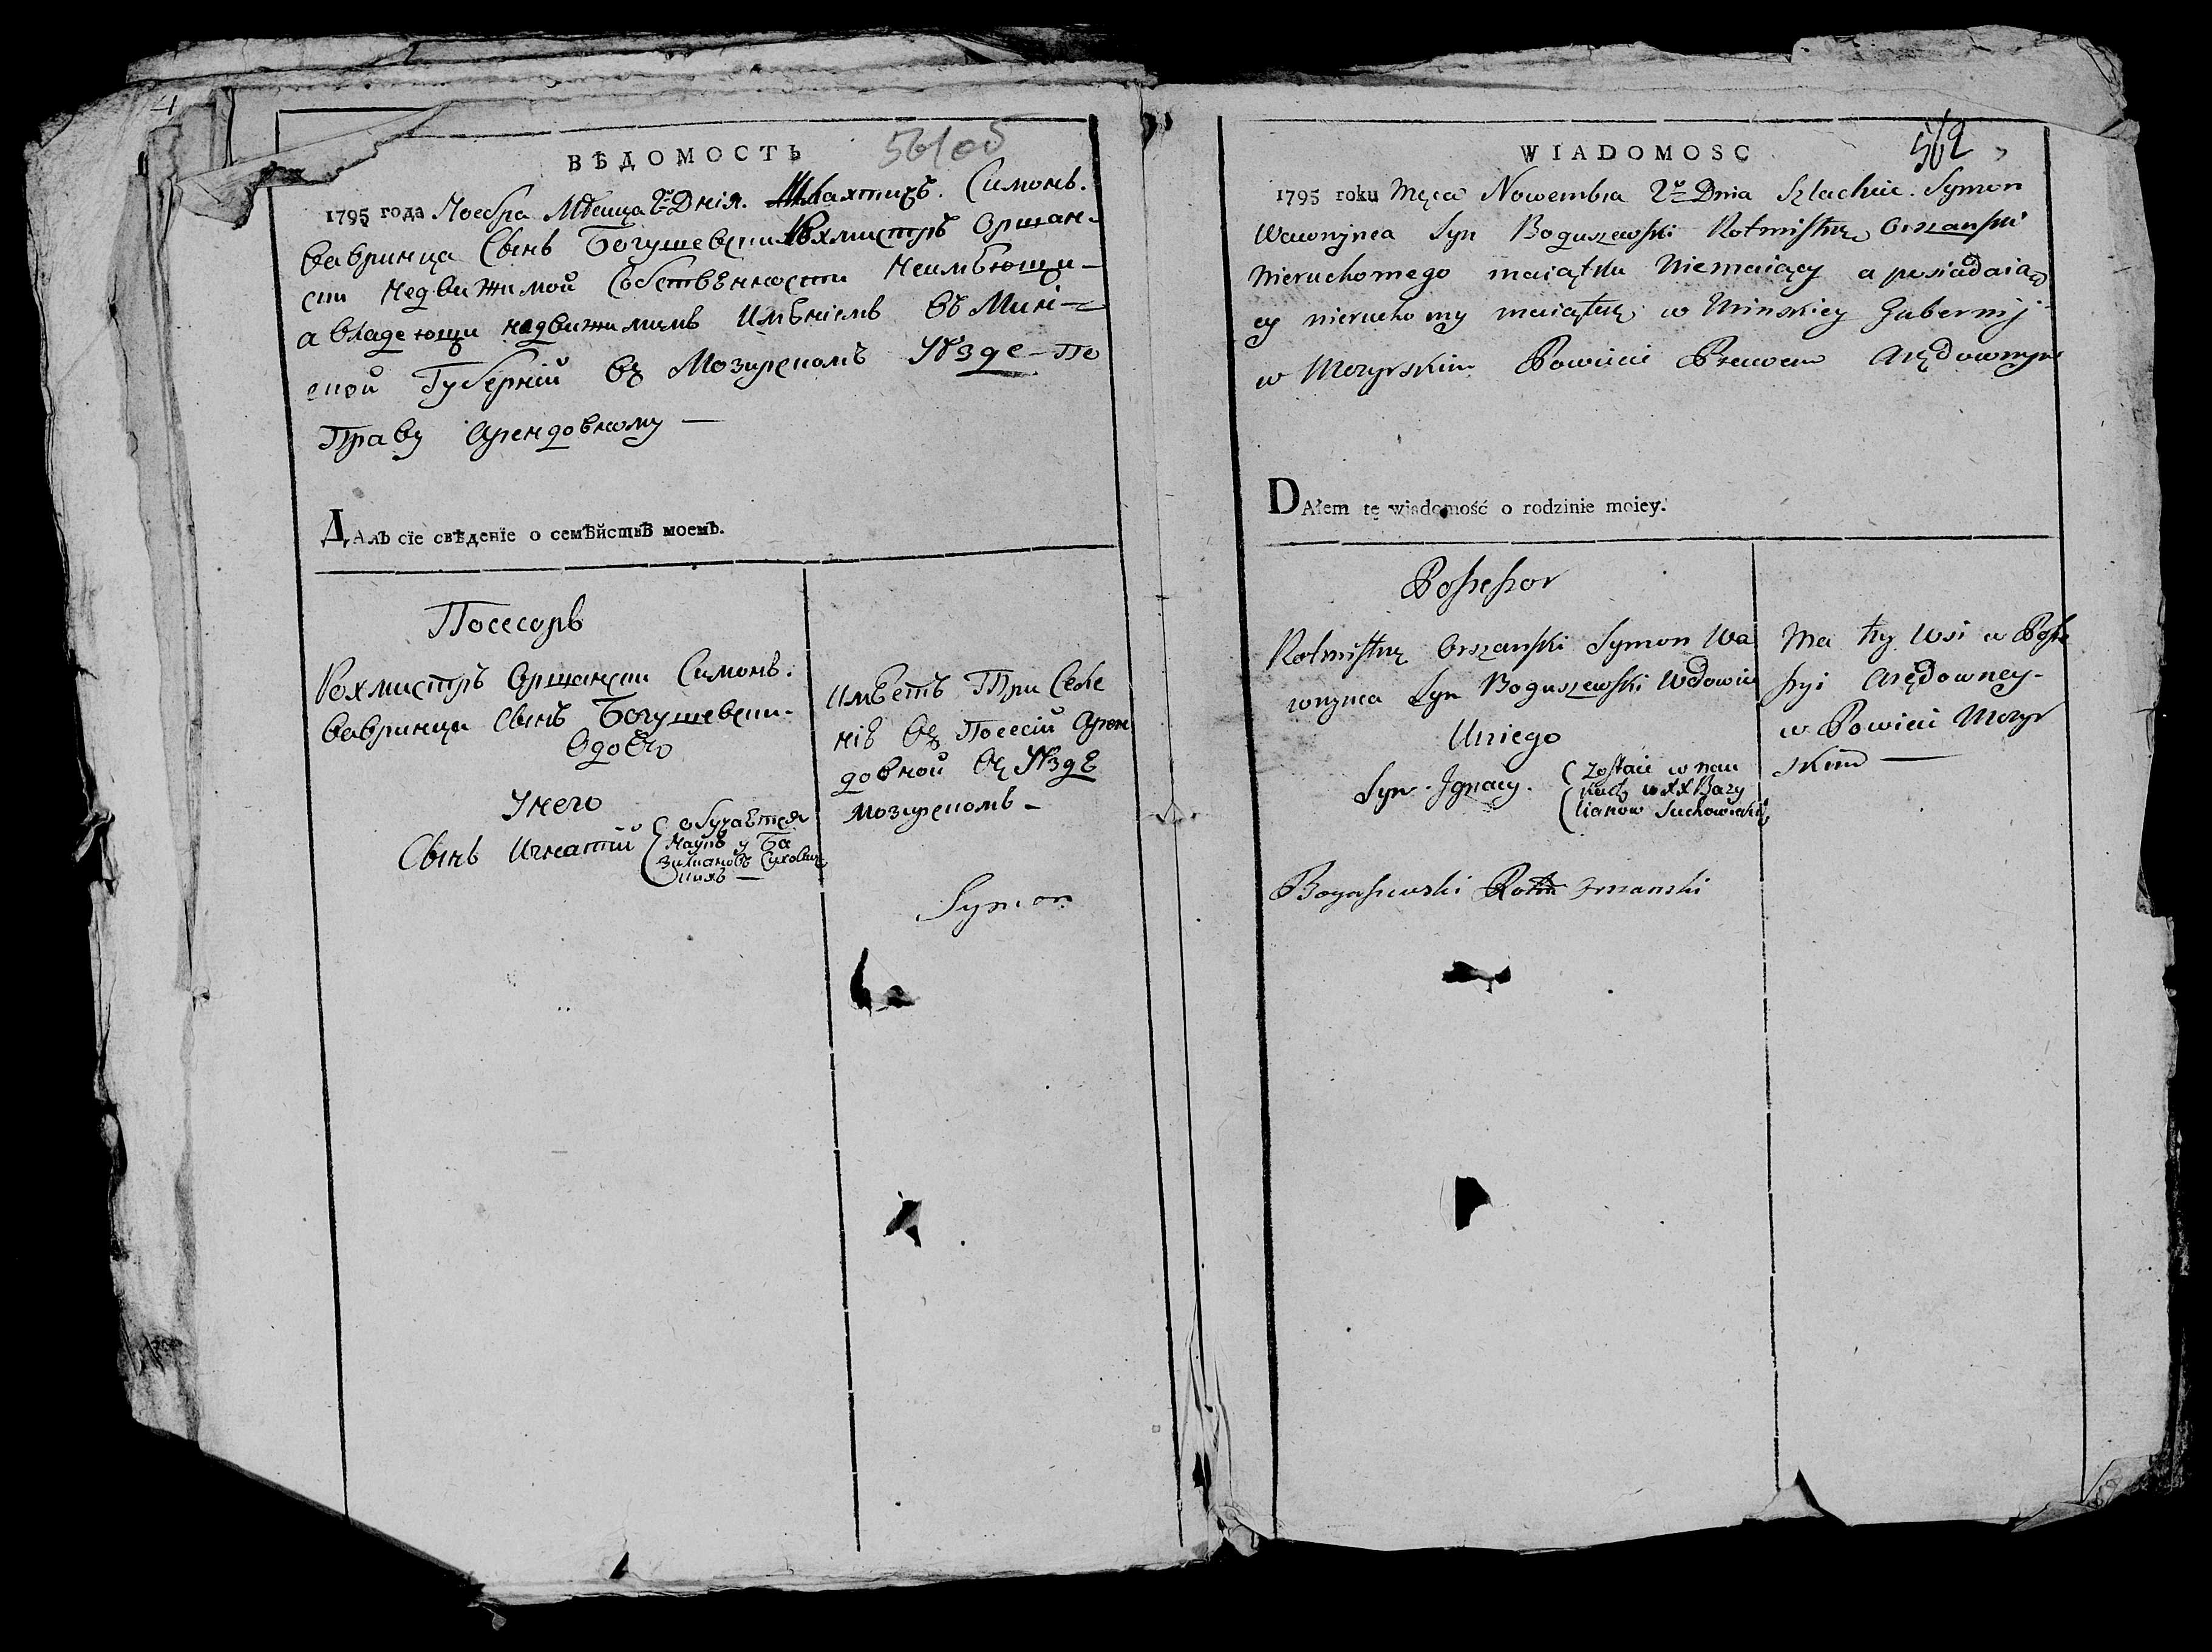 ВѢДОМОСТЬ 561об
1795 года Ноебра Мѣсица 2го Днія. Шлахтичъ. Симонъ.
Вавринца Сынъ Богушевски Рохмистръ Оршан-
ски Недвижимой Собственности Неимѣющи-
а владеющи недвижимимъ Имѣніемъ въ Мин-
ской Губерніи въ Мозирскомъ Уѣзде-По
Праву Арендовному —
ДАлъ сїе свѣденїе о семѣйствѣ моемъ.
Посесоръ
Рохмистръ Оршански Симонъ.
Вавринца Сынъ Богушевски-
Вдовѣо
Унего
Сынъ Игнатий
обучаѣтся
Наукъ у Ба
зилиановъ Сухович
кихъ —
Имѣетъ Три Селе
ніѣ въ Посесіи Арен
довной въ Уѣздѣ
Мозирскомъ -
Symon
WIADOMOSC 562
1795 roku Męca Nowembra 2go Dnia Szlachcic. Symon
Wawrzynca Syn Boguszewski Rotmistrz Orszanski
Nieruchomego maiątku Niemaiący a posiadaią
cy nieruchomy maiątek w Minskiey Gubernij
w Mozyrskim Powiecie Prawem Arędownym
DAłem tę wiadomość o rodzinie moiey.
Possessor
Rotmistrz Orszanski Symon Wa
wrzynca Syn Boguszewski Wdowiec
Uniego
Syn Ignacy.
zostaie w nau
kach w XX Bazy
lianow Suchowickich
Ma trzy Wsi w Posse
syi Arędowney-
w Powiecie Mozyr
skim —
Boguszewski Rotm Orszanski